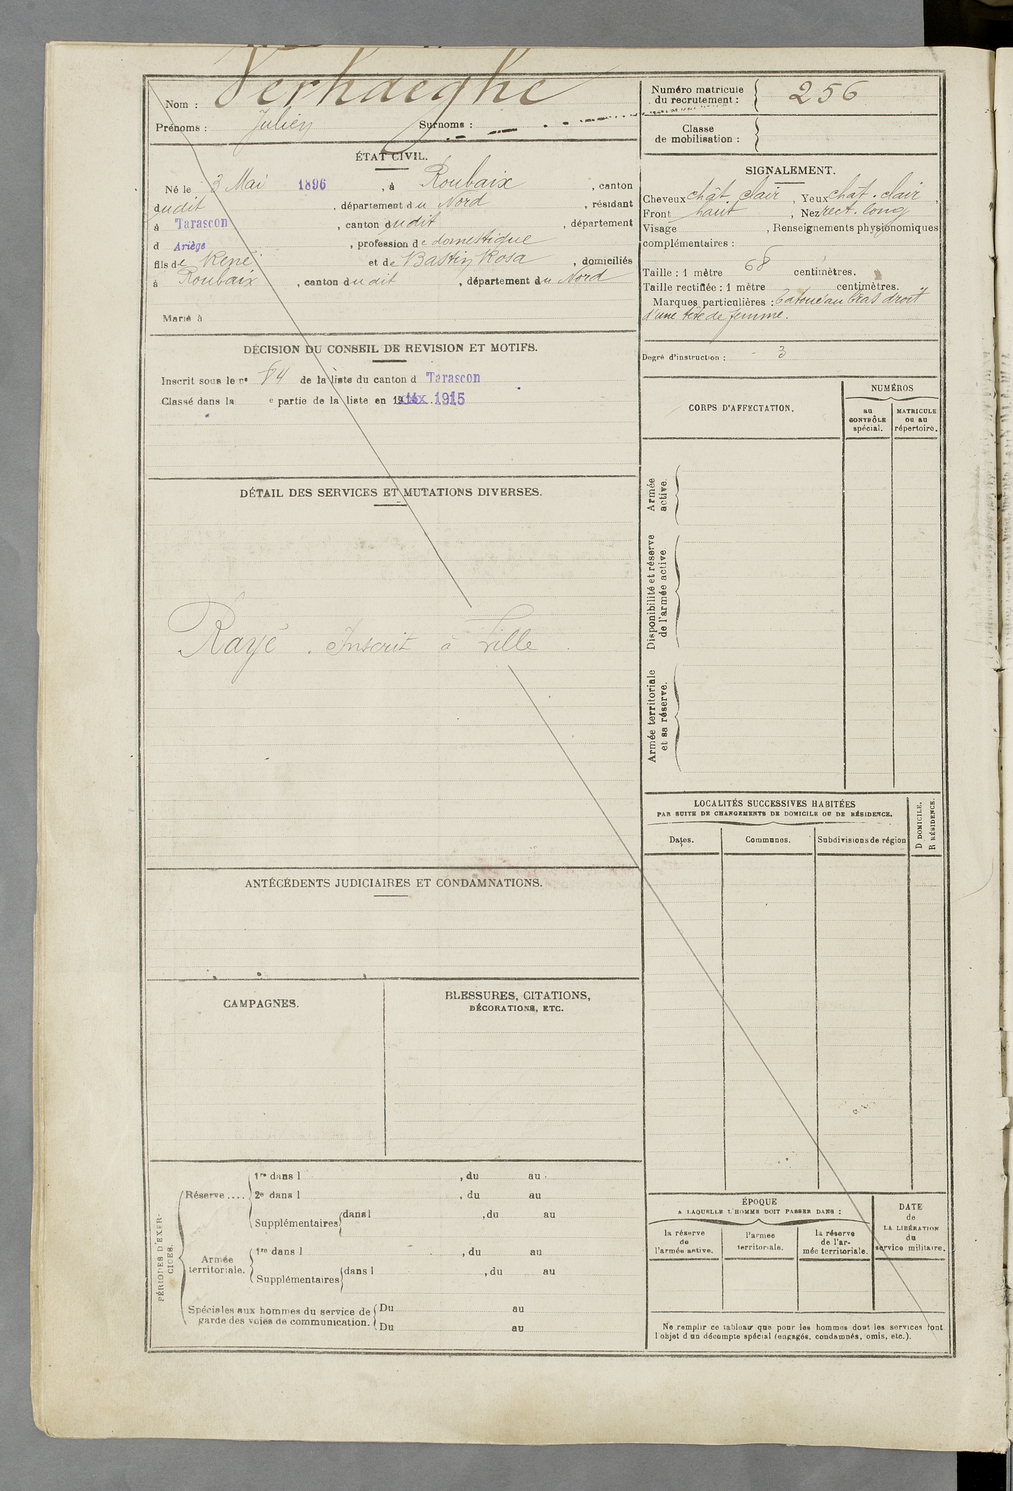 Nom : Verhaeghe
Prénoms : Julien Surnoms :
ÉTAT CIVIL.
Né le 3 Mai 1896 , à Roubaix , canton
dudit , département du Nord , résidant
à Tarascon , canton dudit , département
d Ariège , profession de domestique
fils de René et de Bastin Rosa , domiciliés
à Roubaix , canton dudit , département du Nord
Marié à
DÉCISION DU CONSEIL DE REVISION ET MOTIFS.
Inscrit sous le n° 84 de la liste du canton d Tarascon
Classé dans la e partie de la liste en 1915
DÉTAIL DES SERVICES ET MUTATIONS DIVERSES.
Rayé. Inscrit à Lille
ANTÉCÉDENTS JUDICIAIRES ET CONDAMNATIONS.
CAMPAGNES.
BLESSURES, CITATIONS,
DÉCORATIONS, ETC.
PÉRIODES D'EXER-
CICES.
Réserve ....
1re dans l , du au
2e dans l , du au
Supplémentaires dans l , du au
Armée
territoriale.
1re dans l , du au
Supplémentaires dans l , du au
Spéciales aux hommes du service de
garde des voies de communication.
Du au
Du au
Numéro matricule
du recrutement : 256
Classe
de mobilisation :
SIGNALEMENT.
Cheveux chât. clair , Yeux chat. clair ,
Front haut , Nez rect. long
Visage , Renseignements physionomiques
complémentaires :
Taille : 1 mètre 68 centimètres.
Taille rectifiée : 1 mètre centimètres.
Marques particulières : Tatoué au bras droit
d'une tête de femme.
Degré d'instruction : 3
CORPS D'AFFECTATION.
NUMÉROS
au
CONTRÔLE
spécial.
MATRICULE
OU AU
répertoire.
Armée
active.
Disponibilité et réserve
de l'armée active.
Armée territoriale
et sa réserve.
LOCALITÉS SUCCESSIVES HABITÉES
PAR SUITE DE CHANGEMENTS DE DOMICILE OU DE RÉSIDENCE.
Dates. Communes. Subdivisions de région
D DOMICILE.
R RÉSIDENCE.
ÉPOQUE
A LAQUELLE L'HOMME DOIT PASSER DANS :
la réserve
de
l'armée active.
l'armée
territoriale.
la réserve
de l'ar-
mée territoriale.
DATE
de
LA LIBÉRATION
du
service militaire.
Ne remplir ce tableau que pour les hommes dont les services font
l'objet d'un décompte spécial (engagés, condamnés, omis, etc.).